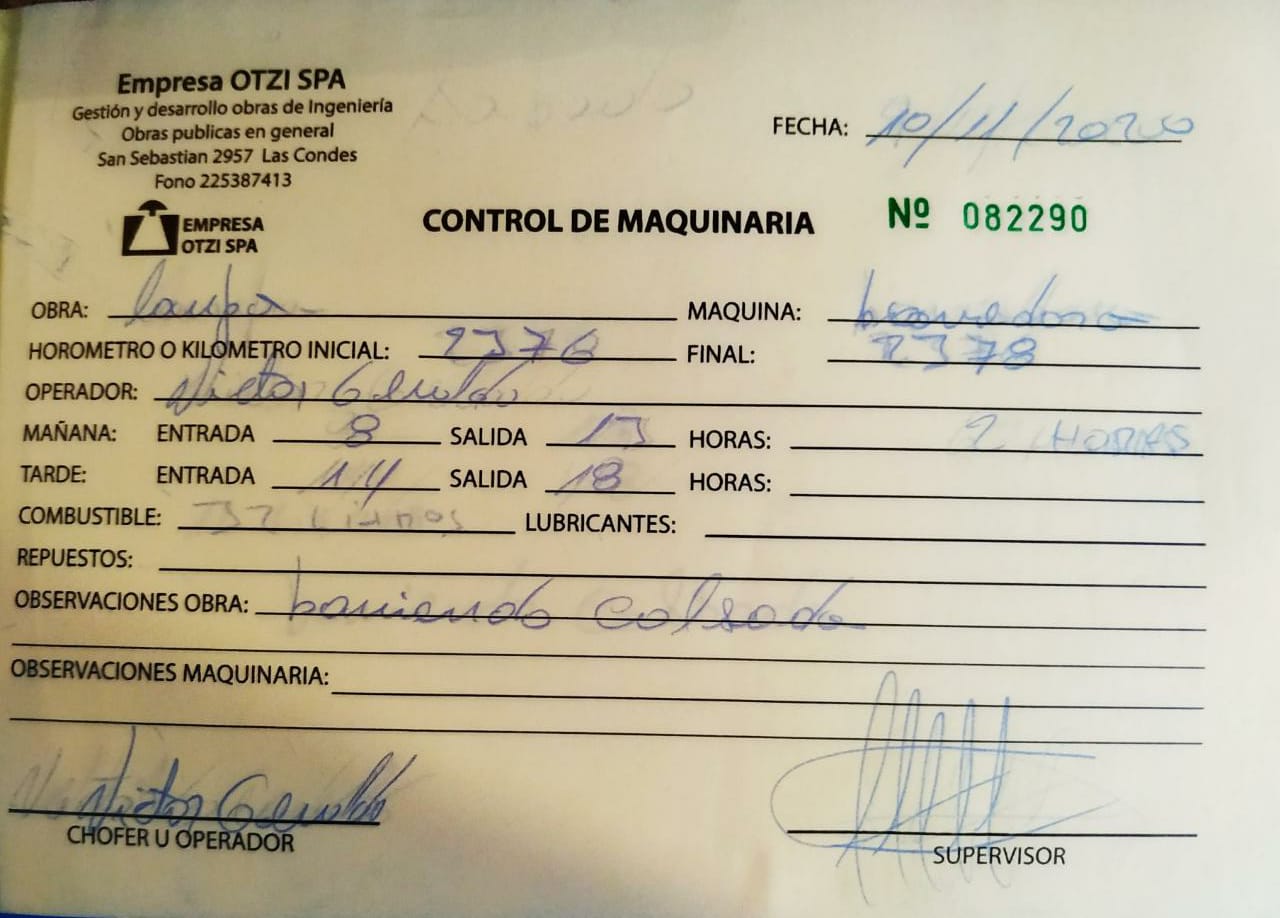 Empresa OTZI SPA
Gestión y desarrollo obras de Ingeniería
Obras publicas en general
San Sebastian 2957 Las Condes
Fono 225387413
FECHA: 10/11/2020
EMPRESA
OTZI SPA
CONTROL DE MAQUINARIA
Nº 082290
OBRA: lampa MAQUINA: barredora
HOROMETRO O KILOMETRO INICIAL: 2376 FINAL: 2378
OPERADOR: Victor
MAÑANA: ENTRADA 8 SALIDA 13 HORAS: 2 HORAS
TARDE: ENTRADA 14 SALIDA 18 HORAS:
COMBUSTIBLE: LUBRICANTES:
REPUESTOS:
OBSERVACIONES OBRA: barriendo calsada
OBSERVACIONES MAQUINARIA:
Victor
CHOFER U OPERADOR
SUPERVISOR